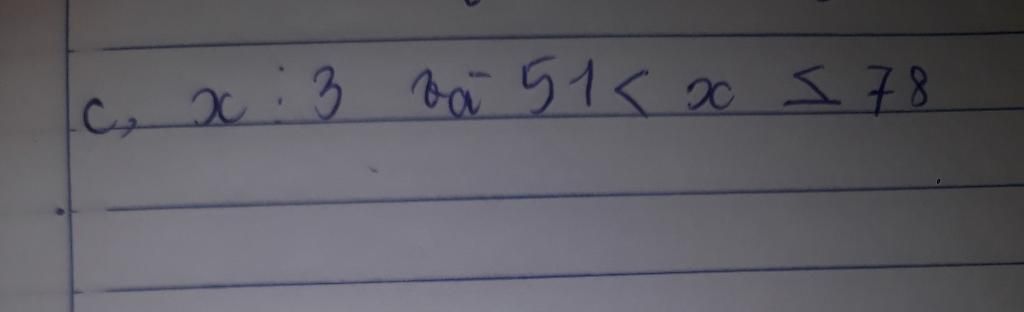 c, x ⋮ 3 và 51 < x ≤ 78